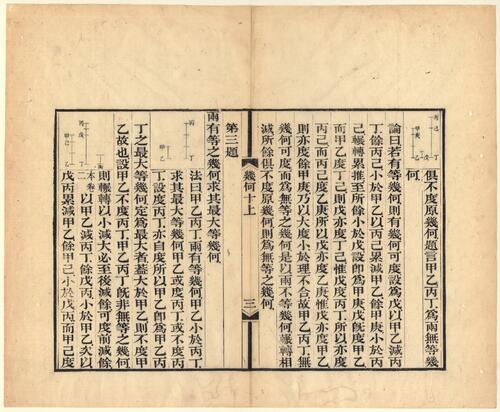 俱不度原幾何題言甲乙丙丁爲兩無等幾
何
論曰若有等幾何則有幾何可度設爲戊以甲乙減丙
丁餘丙己小於甲乙以丙己累減甲乙餘甲庚小於丙
己輾轉累推至所餘小於戊設卽爲甲庚戊旣度甲乙
而甲乙度丁己則戊亦度丁己惟戊度丙丁所以亦度
丙己而丙己度乙庚所以戊亦度乙庚惟戊亦度甲乙
則亦度餘甲庚乃以大度小於理不合故甲乙丙丁無
幾何可度而爲無等之幾何是以兩不等幾何輾轉相
減所餘俱不度原幾何則爲無等之幾何
幾何十上
三
第三題
兩有等之幾何求其最大等幾何
法曰甲乙丙丁兩有等幾何甲乙小於丙丁
求其最大等幾何甲乙或度丙丁或不度丙
丁設度丙丁亦自度所以甲乙卽爲甲乙丙
丁之最大等幾何定爲最大者蓋大於甲乙則不度甲
乙故也設甲乙不度丙丁甲乙丙丁旣非無等之幾何
則輾轉以小減大必至後減餘可度前減餘
本卷二以甲乙減丙丁餘戊丙小於甲乙次以
戊丙累減甲乙餘甲己小於戊丙而甲己度